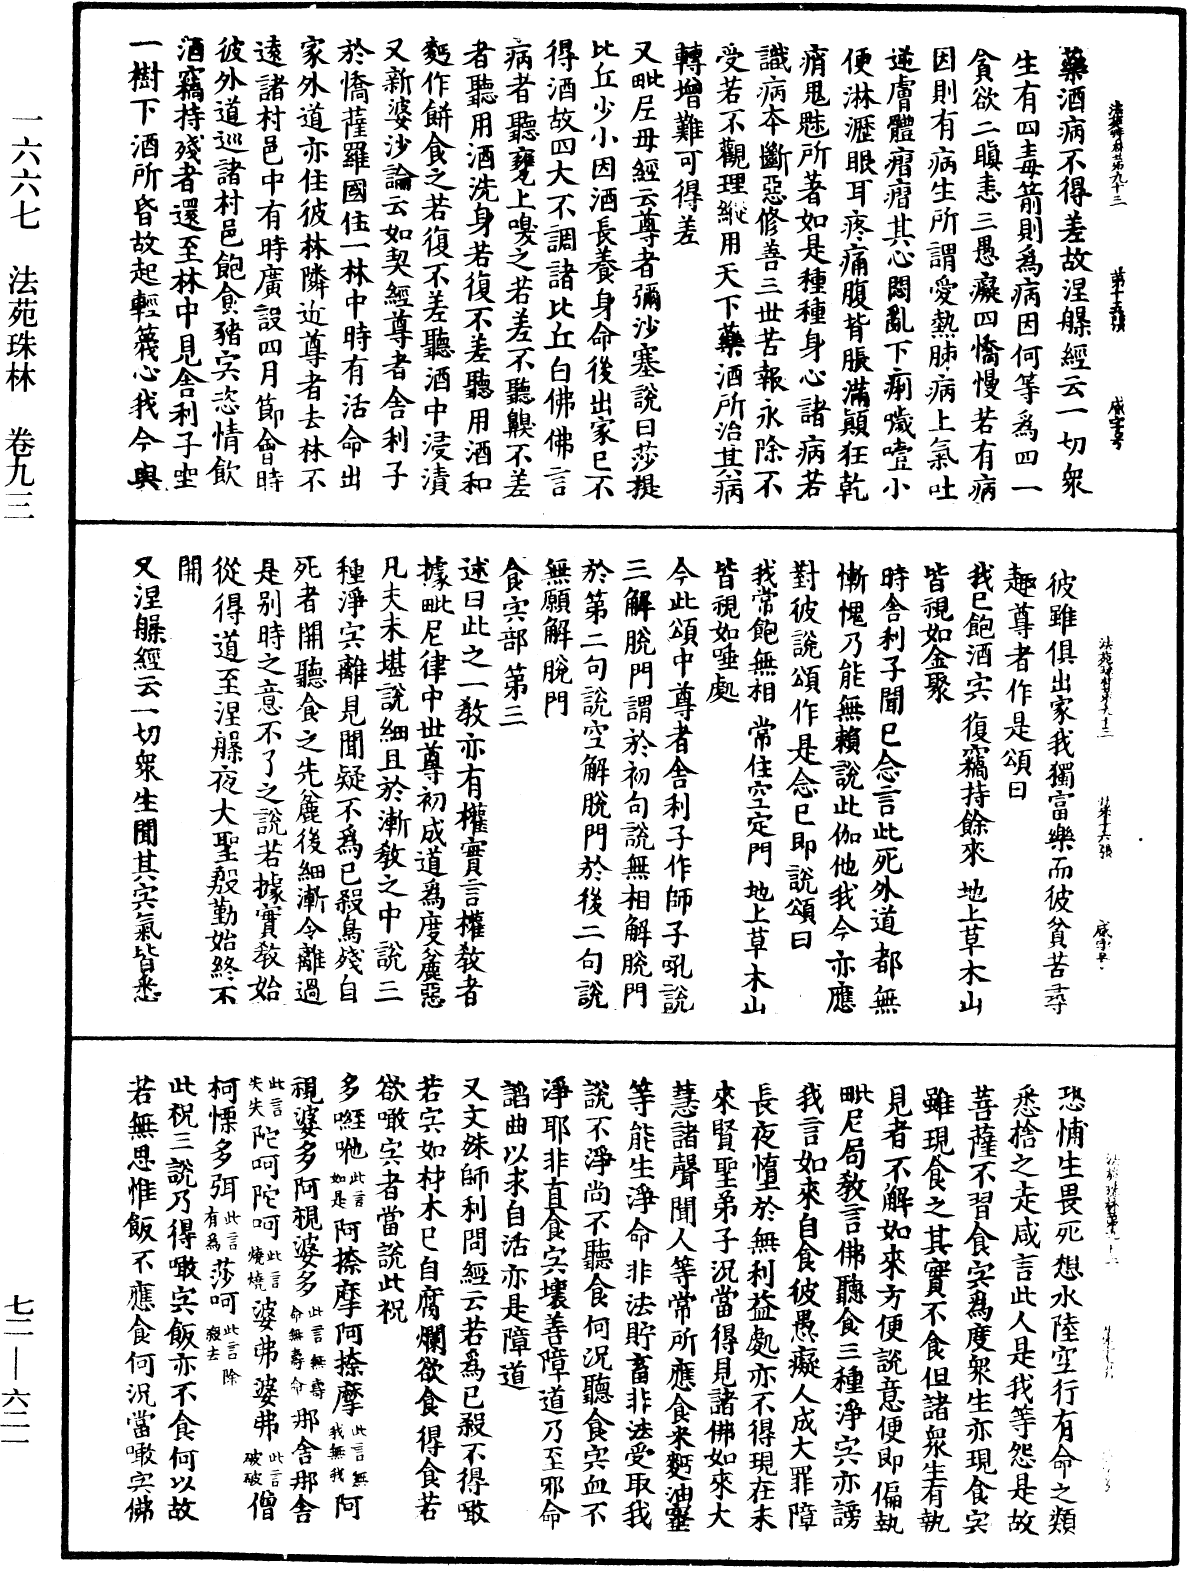 一六六七　法苑珠林　卷九三
七二—六二一
法苑珠林第九十三　第十五張　咸字号
藥酒病不得差故涅槃經云一切衆
生有四毒箭則爲病因何等爲四一
貪欲二瞋恚三愚癡四憍慢若有病
因則有病生所謂愛熱肺病上氣吐
逆膚體瘡瘡其心悶亂下痢噦噎小
便淋瀝眼耳疼痛腹背脹滿顛狂乾
痟鬼魅所著如是種種身心諸病若
識病本斷惡修善三世苦報永除不
受若不觀理縱用天下藥酒所治其病
轉增難可得差
又毗尼母經云尊者彌沙塞說曰莎提
比丘少小因酒長養身命後出家已不
得酒故四大不調諸比丘白佛佛言
病者聽甕上嗅之若差不聽齅不差
者聽用酒洗身若復不差聽用酒和
麪作餅食之若復不差聽酒中浸漬
又新婆沙論云如契經尊者舍利子
於憍薩羅國住一林中時有活命出
家外道亦住彼林隣近尊者去林不
遠諸村邑中有時廣設四月節會時
彼外道巡諸村邑飽食豬宍恣情飲
酒竊持殘者還至林中見舍利子坐
一樹下酒所昏故起輕篾心我今與
彼雖俱出家我獨富樂而彼貧苦尋
趣尊者作是頌曰
我已飽酒宍　復竊持餘來　地上草木山
皆視如金聚
時舍利子聞已念言此死外道都無
慚愧乃能無賴說此伽他我今亦應
對彼說頌作是念已即說頌曰
我常飽無相　常住空定門　地上草木山
皆視如唾處
今此頌中尊者舍利子作師子吼說
三解脫門謂於初句說無相解脫門
於第二句說空解脫門於後二句說
無願解脫門
食宍部第三
述曰此之一教亦有權實言權教者
據毗尼律中世尊初成道爲度麁惡
凡夫未堪說細且於漸教之中說三
種淨宍離見聞疑不爲已殺鳥殘自
死者開聽食之先麁後細漸令離過
是別時之意不了之說若據實教始
從得道至涅槃夜大聖慇勤始終不
開
又涅槃經云一切衆生聞其宍氣皆悉
恐怖生畏死想水陸空行有命之類
悉捨之走咸言此人是我等怨是故
菩薩不習食宍爲度衆生亦現食宍
雖現食之其實不食但諸衆生有執
見者不解如來方便說意便即偏執
毗尼局教言佛聽食三種淨宍亦謗
我言如來自食彼愚癡人成大罪障
長夜墮於無利益處亦不得現在未
來賢聖弟子況當得見諸佛如來大
慧諸聲聞人等常所應食米麪油蜜
等能生淨命非法貯畜非法受取我
說不淨尚不聽食何況聽食宍血不
淨耶非直食宍壞善障道乃至邪命
諂曲以求自活亦是障道
又文殊師利問經云若爲已殺不得噉
若宍如材木已自腐爛欲食得食若
欲噉宍者當說此祝
多𠰒吔此言如是阿捺摩阿捺摩此言無我無我阿
視婆多阿視婆多此言無壽命無壽命那舍那舍
此言失失陀呵陀呵此言燒燒婆弗婆弗此言破破僧
柯慄多弭此言有爲莎呵此言除殺去
此祝三說乃得噉宍飯亦不食何以故
若無思惟飯不應食何況當噉宍佛